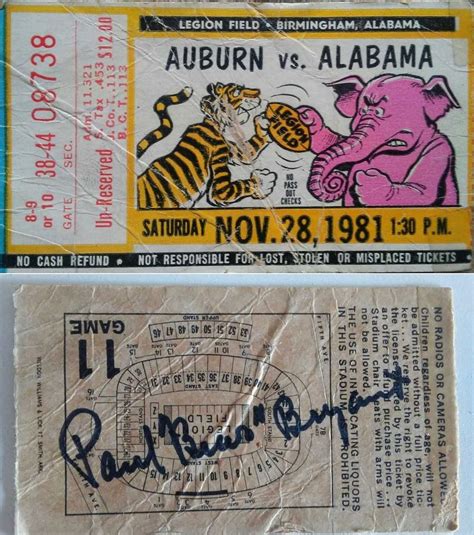 LEGION FIELD • BIRMINGHAM, ALABAMA
AUBURN vs. ALABAMA
LEGION
FIELD
NO
PASS
OUT
CHECKS
SATURDAY NOV. 28, 1981 1:30 P.M.
NO CASH REFUND • NOT RESPONSIBLE FOR LOST, STOLEN OR MISPLACED TICKETS
8-9 or 10
GATE
38-44
SEC.
08738
Up-Reserved $12.00
ADM 11.321
S. Tax .453
B.C.T. .113
GAME
11
UPPER STAND
EAST STAND
LEGION
FIELD
WEST STAND
FIFTH AVE
78
Paul "Bear" Bryant
NO RADIOS OR CAMERAS ALLOWED
Children regardless of age, will not
be admitted without a full price tic-
ket. We reserve the right to revoke
the license granted by this ticket by
an offer to refund purchase price
Stadium chair seats with arms will
not be allowed.
THE USE OF INTOXICATING LIQUORS
IN THIS STADIUM PROHIBITED.